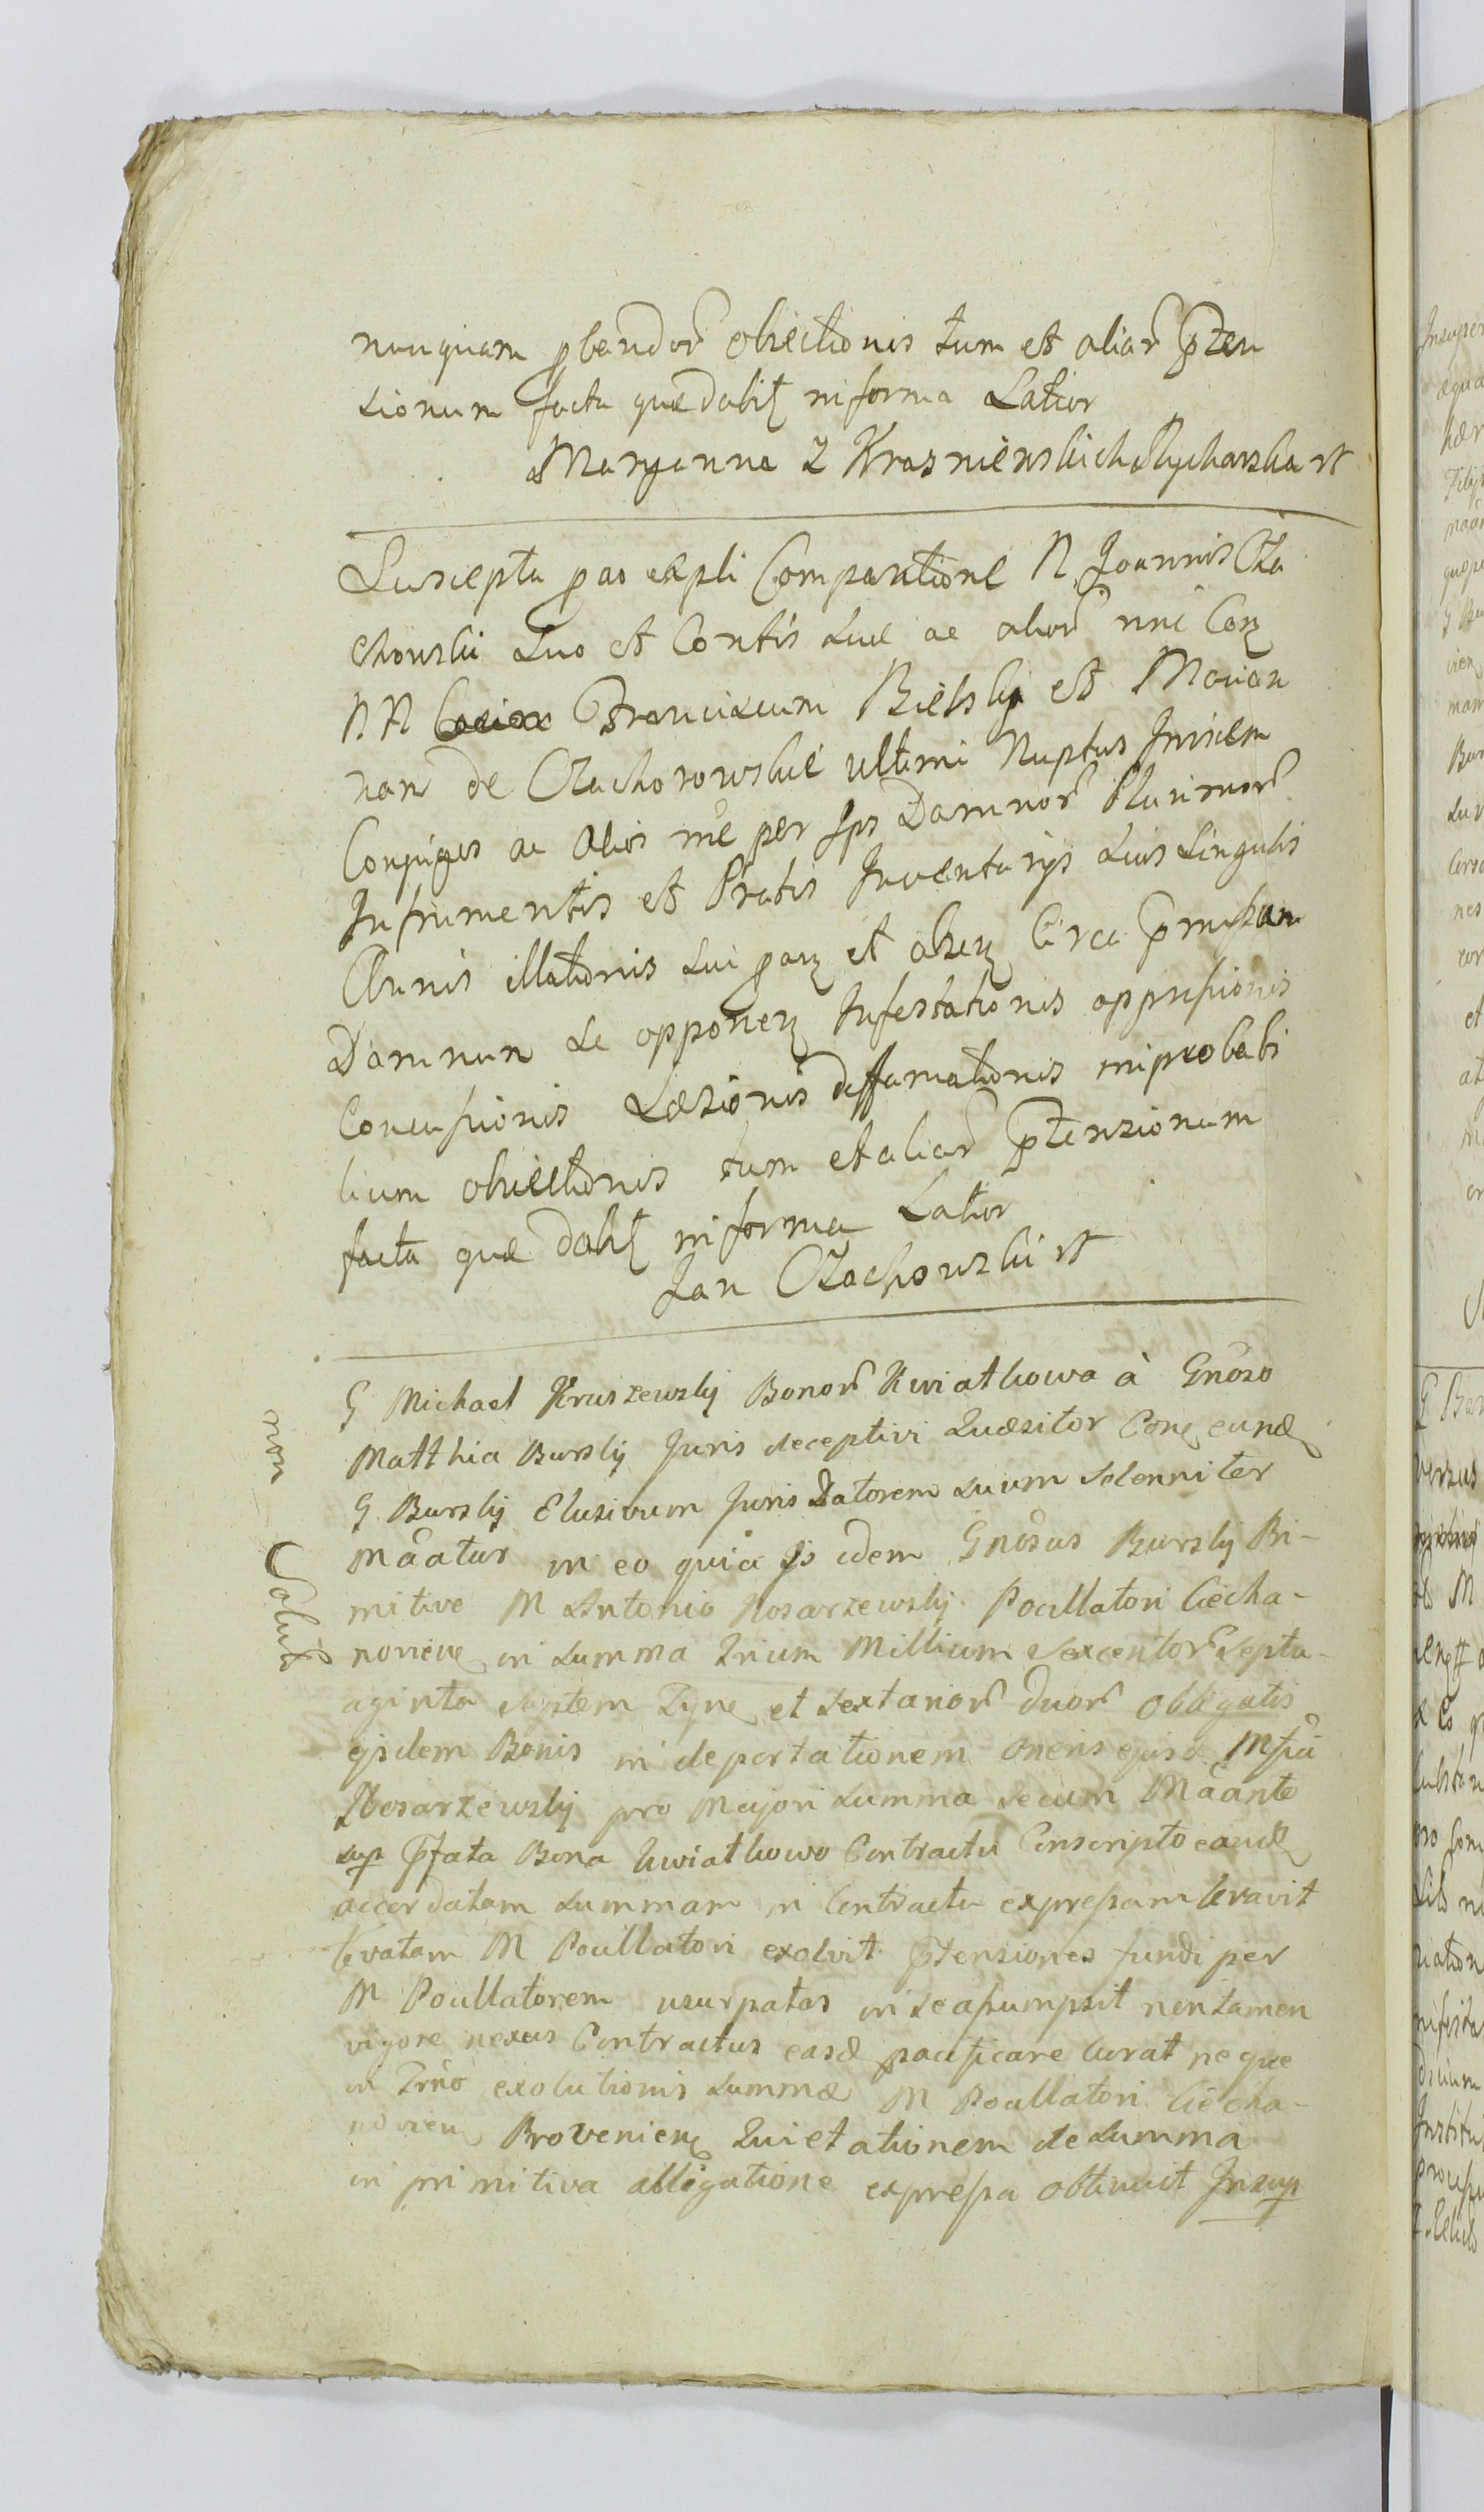 nunquam pbandor obiectionis tum et aliar pten
sionum facta quæ dabit in forma Latior
Maryanna Z Krasniewskich Rycharska rt
Suscepta p ao expli Comparatione N Joannis Cza
chowski suo et Contis suæ ac alior nnē Con
N N Franciscum Bielski et Marian
nan de Czachorowskie ultimi Nuptus Invicem
Conjuges ac Alios mē per Ips Damnor Plurimor
In frumentis et Pratis Inventarijs suis singulis
Annis illationis sui par et Circa pmissam
Damnum se opponen Infestationis oppressionis
Concussionis Læsionis diffamationis improbabi
lium obiectionis tum et aliar ptensionum
facta quæ dabit in forma Latior
Jan Czachowski rt
G Michael Kruszewskij Bonor Kwiatkowa à Gnôso
Matthia Burskij Juris receptivi Quæsitor Con eund
G Burskij Elusivum Juris Datorem suum solenniter
Mâatur in eo quia Is idem Gnôsus Burskij Pri-
mitive M Antonio Kosarzewskij Pocillatori Ciecha-
novien in summa Trium Millium Sexcentor Septu-
aginta septem Tyn et sextanor duor obligatis
ijsdem Bonis in deportationem oneris ejusd Mfci
Kosarzewskij pro Majori summa secum Mâante
sup pfata Bona Kwiatkowo Contractu Conscripto eand
accordatam summam in Contractu expressam levavit
levatam M Pocillatori exolvit ptensiones fundi per
M Pocillatorem usurpatas in se assumpsit non tamen
vigore nexus Contractus easd pacificare curat neque
in Trno exolutionis summæ M Pocillatori Ciecha-
novien Provenien Quietationem de summa
in primitiva obligatione expressa obtinuit Insup
non Solut